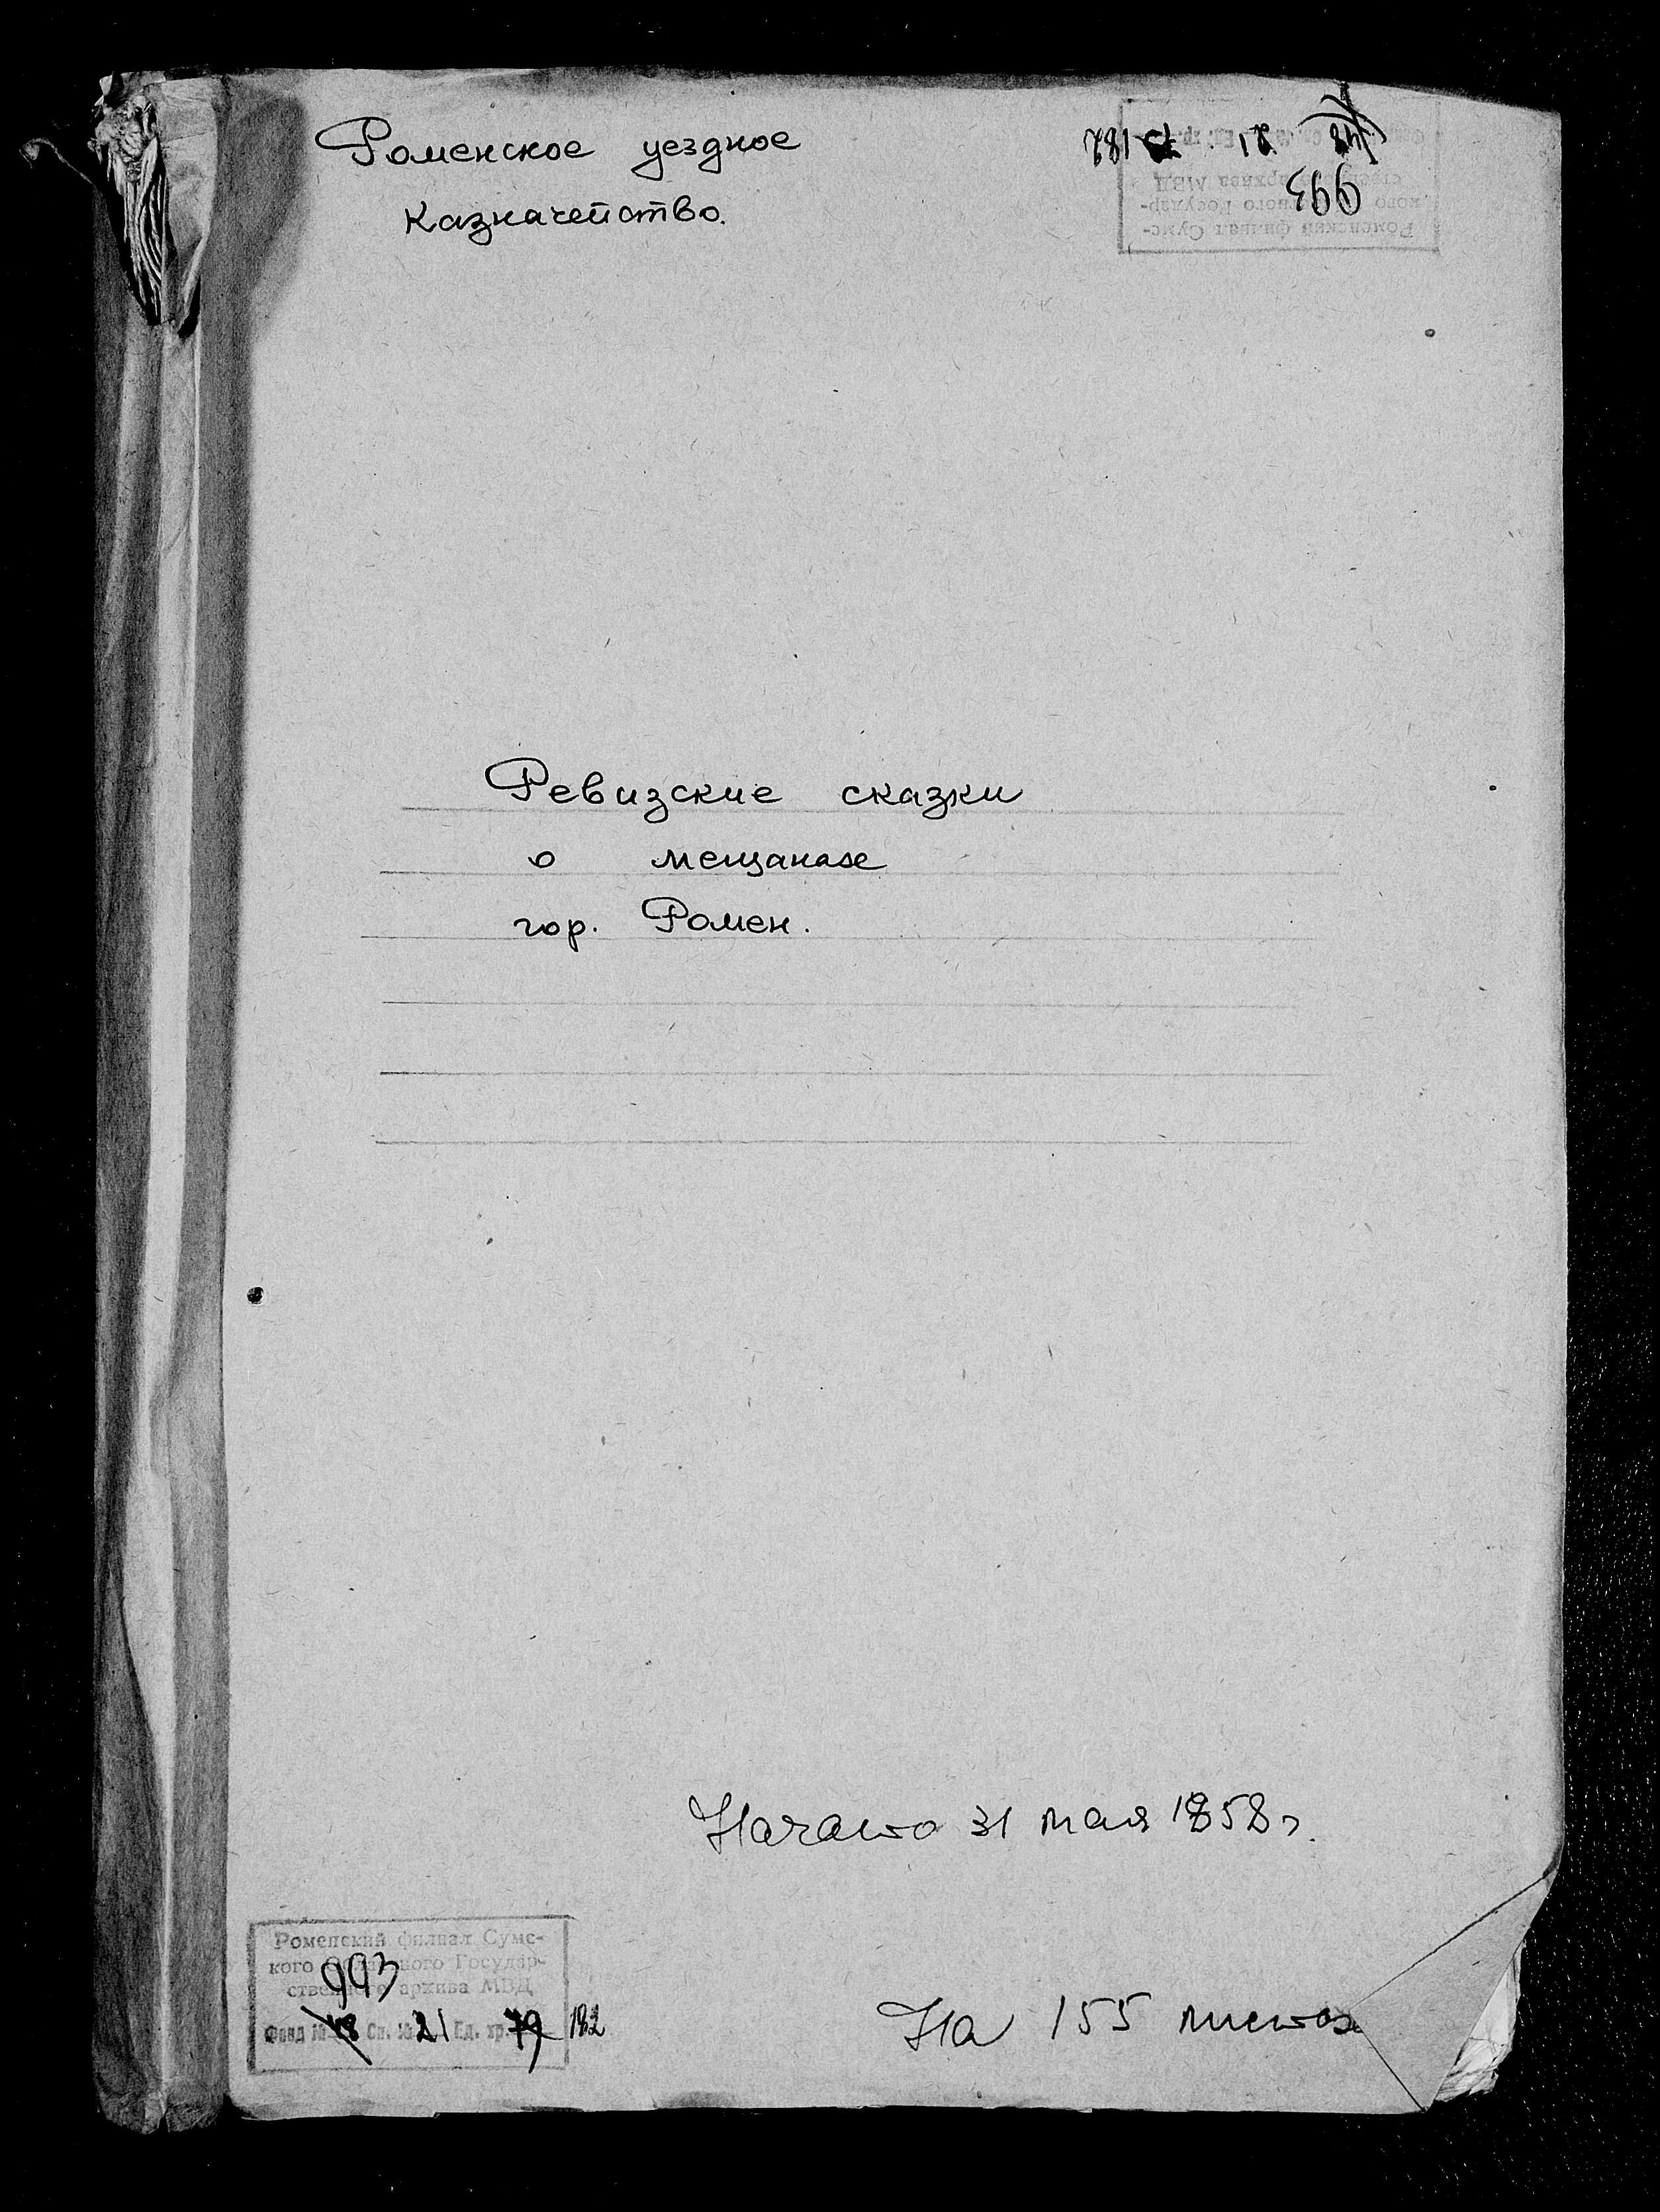 Роменское уездное
казначейство.
993
48 21 79 182
Роменский филиал Сумс-
кого Областного Государ-
ственного архива МВД
Ревизские сказки
о мещанах
гор. Ромен.
Начато 31 мая 1858 г.
Роменский филиал Сумс-
кого Областного Государ-
ственного архива МВД
993
Фонд № 48 Оп. № 21 Ед. хр. 79 182
На 155 листах